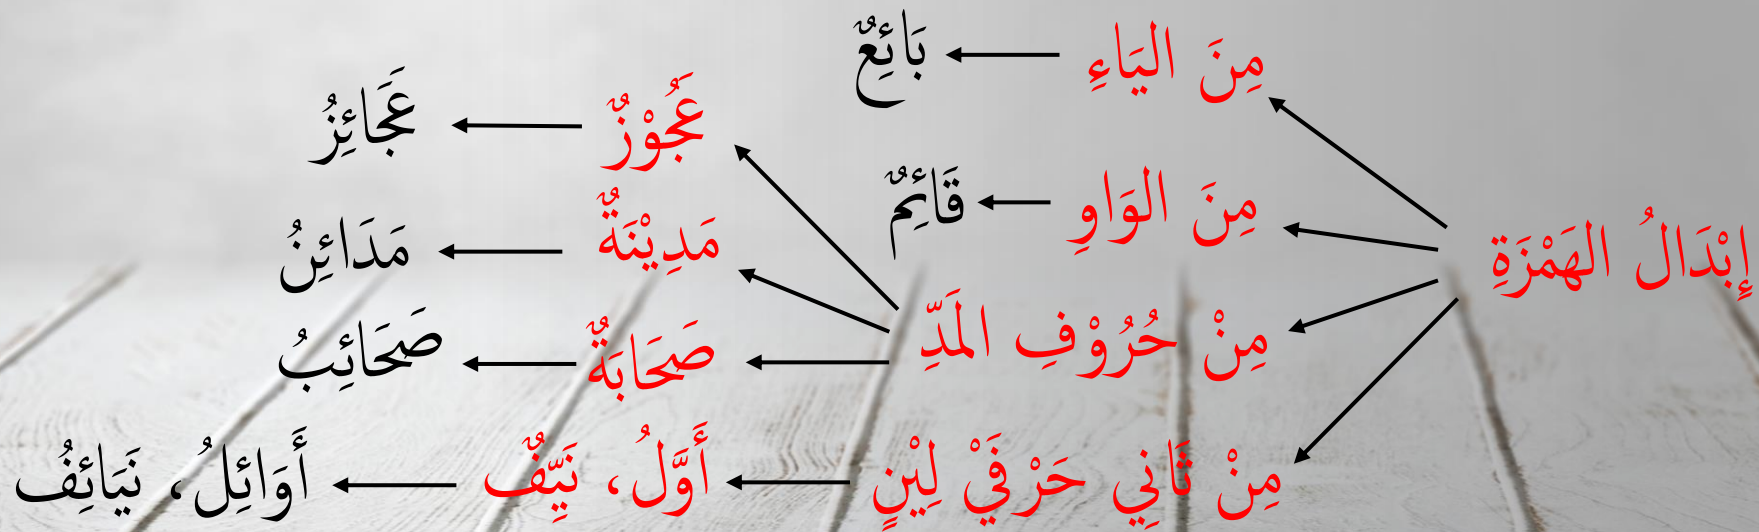 إِبْدَالُ الهَمْزَةِ
مِنَ اليَاءِ
بَائِعٌ
مِنَ الوَاوِ
قَائِمٌ
مِنْ حُرُوْفِ المَدِّ
عَجُوْزٌ
عَجَائِزُ
مَدِيْنَةٌ
مَدَائِنُ
صَحَابَةٌ
صَحَائِبُ
مِنْ ثَانِي حَرْفَيْ لِيْنٍ
أَوَّلُ، نَيِّفٌ
أَوَائِلُ، نَيَائِفُ